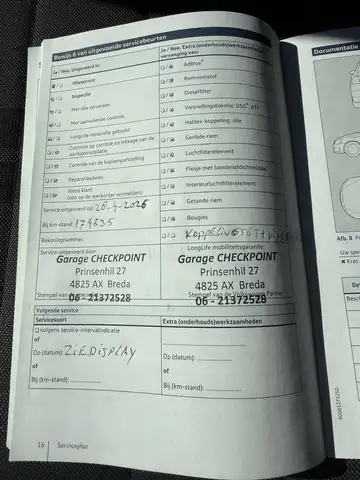 Bewijs 6 van uitgevoerde servicebeurten
Ja / Nee. Uitgevoerd is:
Olieservice
Inspectie
Met olie verversen
Met aanvullende controle
Longlife motorolie gebruikt
Controle op corrosie en lekkage van de aardgasinstallatie
Controle van de koplampafstelling
Reparatieadvies
Wenst klant
(ook op de werkorder vermelden)
Service uitgevoerd op: 28-4-2026
Bij km-stand: 174695
Rekeningnummer:
Service uitgevoerd door:
Garage CHECKPOINT
Prinsenhil 27
4825 AX Breda
06 - 21372528
Ja / Nee. Extra (onderhouds)werkzaamheden
vervanging van:
AdBlue®
Remvloeistof
Dieselfilter
Versnellingsbakolie: DSG®, ATF
Haldex-koppeling: olie
Geribde riem
Luchtfilterelement
Flesje met bandenafdichtmiddel
Interieurluchtfilterelement
Getande riem
Bougies
LongLife mobiliteitsgarantie:
Garage CHECKPOINT
Prinsenhil 27
4825 AX Breda
Stempel van de Volkswagen Partner
06 - 21372528
Volgende service
Servicesoort
volgens service-intervalindicatie
of
Op (datum): ZIE DISPLAY
of
Bij (km-stand):
Extra (onderhouds)werkzaamheden
Op (datum):
of
Bij (km-stand):
16 Serviceplan
Documentatie
Afb. 8
Uw spe